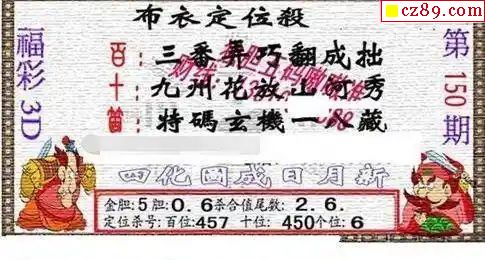 cz89.com
布衣定位殺
福彩3D
第150期
百：三番弄巧翻成拙
十：九州花放山河秀
笛：特碼玄機一八藏
四化國成日月新
金胆:5胆:0.6杀合值尾数:2.6.
定位杀号:百位:457 十位:450个位:6